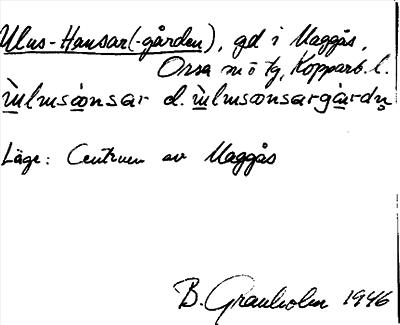 Ulus-Hansar(-gården), gd i Maggås,
Orsa sn o tg, Kopparb. l.
ùlmsònsar d. ùlmsònsargàrdn̥
Läge: Centrum av Maggås
B. Granholm 1946